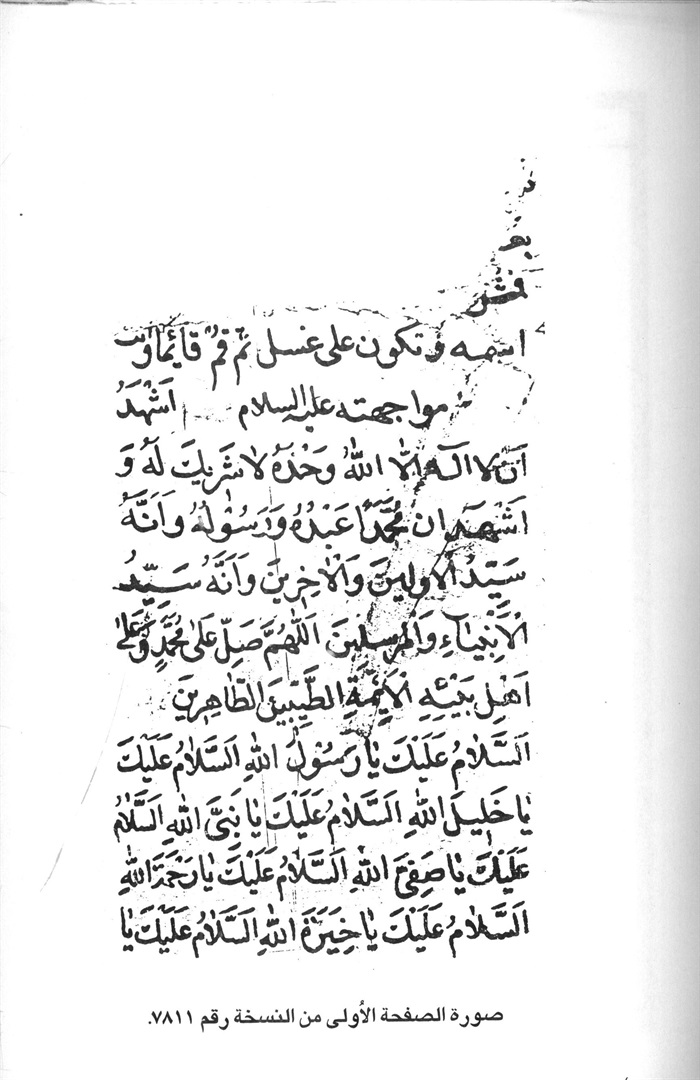 اسمه وتكون على غسل ثم قم قائيما و
مواجهته عليه السلام اَشْهَدُ
اَنْ لا اله اِلَّا اللهُ وَحْدَهُ لا شَرِيكَ لَهُ وَ
اَشْهَد ان مُحَمَّدًا عَبْدُهُ وَرَسُولُهُ وَاَنَّهُ
سَيِّدُ الْاَوَّلِينَ وَالْاٰخِرِينَ وَاَنَّهُ سَيِّدُ
الْاَنْبِيٰاءِ وَالْمُرْسَلِينَ اَللّٰهُمَّ صَلِّ عَلىٰ مُحَمَّدٍ وَعَلىٰ
اَهْلِ بَيْتِهِ الْاَئِمَّةِ الطَّيِّبِينَ الطَّاهِرِينَ
اَلسَّلٰامُ عَلَيْكَ يٰا رَسُولَ اللهِ اَلسَّلٰامُ عَلَيْكَ
يٰا خَلِيلَ اللهِ اَلسَّلٰامُ عَلَيْكَ يٰا نَبِىَّ اللهِ اَلسَّلٰامُ
عَلَيْكَ يٰا صَفِىَّ اللهِ اَلسَّلٰامُ عَلَيْكَ يٰا رَحْمَةَ اللهِ
اَلسَّلٰامُ عَلَيْكَ يٰا خِيَرَةَ اللهِ اَلسَّلٰامُ عَلَيْكَ يٰا
صورة الصفحة الأولى من النسخة رقم ٧٨١١.